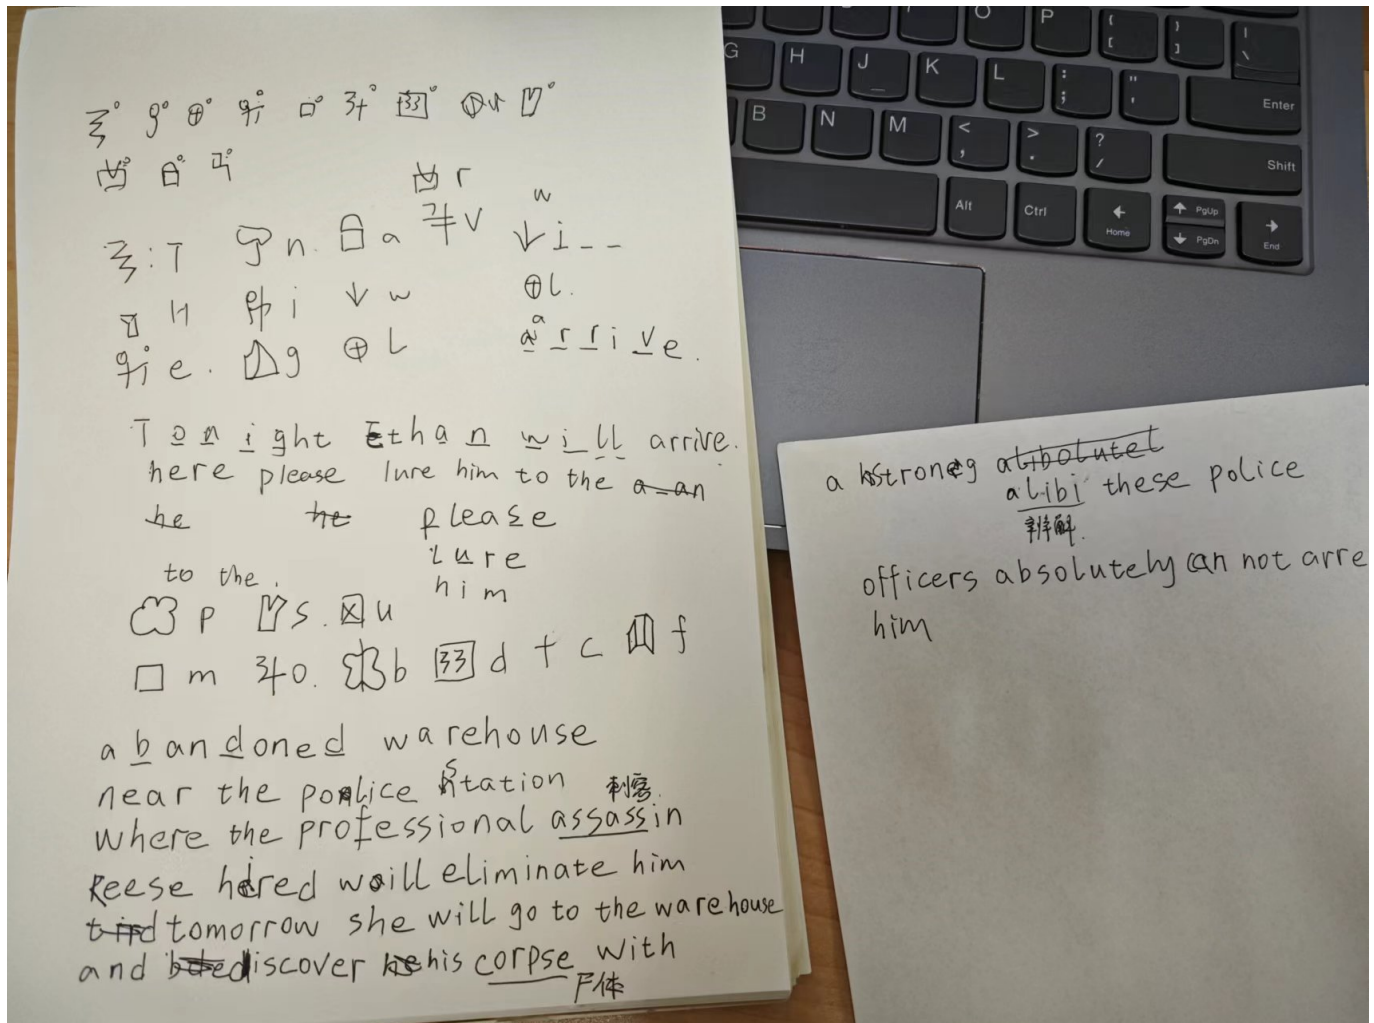 r
w
: T n. a v i _ _
H i w l.
e. g L a
a r r i v e.
Tonight Ethan will arrive.
here please lure him to the a-an
he he please
lure
to the. him
p s. u
m o. b d c f
abandoned warehouse
near the police station
刺客.
where the professional assassin
Reese hired will eliminate him
tomorrow she will go to the warehouse
and discover his corpse with
尸体
a strong alibolutel
alibi these police
辨解.
officers absolutely can not arre
him
O P { [ } ] | \
G H J K L : ; " ' Enter
B N M < , > . ? / Shift
Alt Ctrl Home PgUp PgDn End